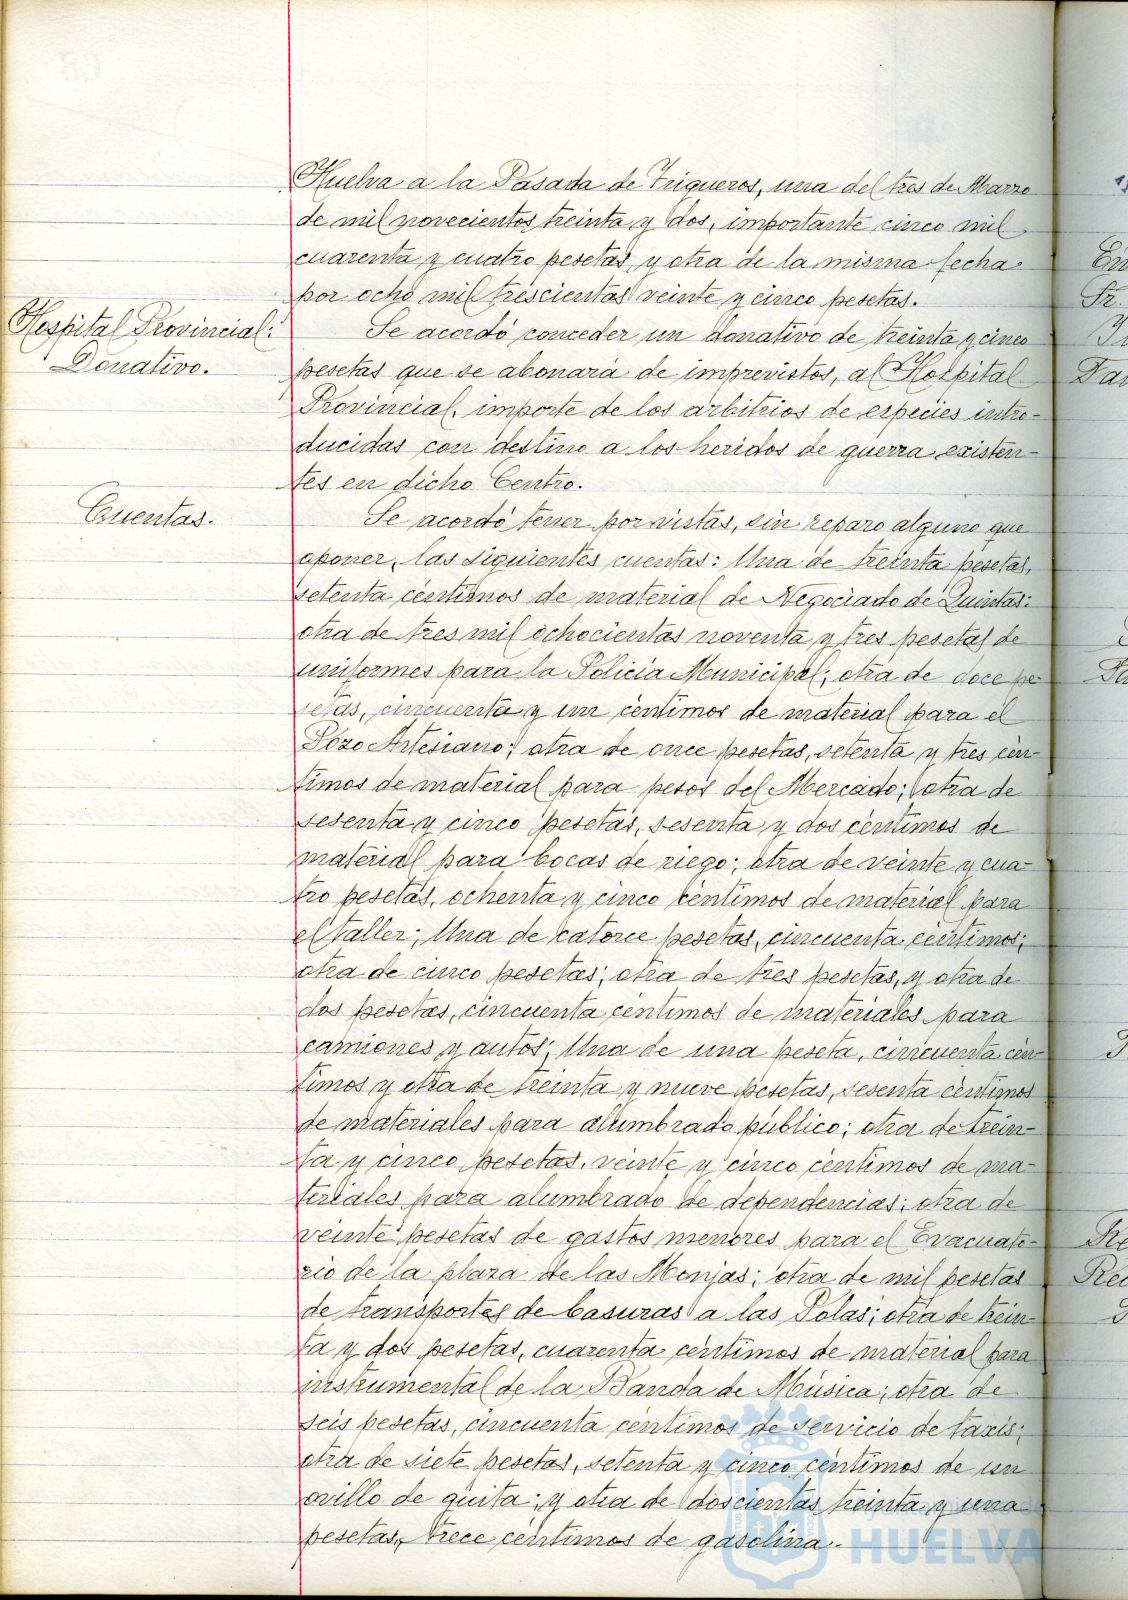 Huelva a la Pasada de Trigueros, una del tres de Marzo
de mil novecientos treinta y dos, importante cinco mil
cuarenta y cuatro pesetas, y otra de la misma fecha
por ocho mil trescientas veinte y cinco pesetas.
Hospital Provincial:
Donativo.
Se acordó conceder un donativo de treinta y cinco
pesetas que se abonará de imprevistos, al Hospital
Provincial, importe de los arbitrios de especies intro-
ducidas con destino a los heridos de guerra existen-
tes en dicho Centro.
Cuentas.
Se acordó tener por vistas, sin reparo alguno que
oponer, las siguientes cuentas: Una de treinta pesetas,
setenta céntimos de material de Negociado de Quintas:
otra de tres mil ochocientas noventa y tres pesetas de
uniformes para la Policía Municipal; otra de doce pe-
setas, cincuenta y un céntimos de material para el
Pozo Artesiano; otra de once pesetas, setenta y tres cén-
timos de material para pesos del Mercado; otra de
sesenta y cinco pesetas, sesenta y dos céntimos de
material para bocas de riego; otra de veinte y cua-
tro pesetas, ochenta y cinco céntimos de material para
el taller; Una de catorce pesetas, cincuenta céntimos;
otra de cinco pesetas; otra de tres pesetas, y otra de
dos pesetas, cincuenta céntimos de materiales para
camiones y autos; Una de una peseta, cincuenta cén-
timos y otra de treinta y nueve pesetas, sesenta céntimos
de materiales para alumbrado público; otra de trein-
ta y cinco pesetas, veinte y cinco céntimos de ma-
teriales para alumbrado de dependencias; otra de
veinte pesetas de gastos menores para el Evacuato-
rio de la plaza de las Monjas; otra de mil pesetas
de transportes de basuras a las Polas; otra de trein-
ta y dos pesetas, cuarenta céntimos de material para
instrumental de la Banda de Música; otra de
seis pesetas, cincuenta céntimos de servicio de taxis;
otra de siete pesetas, setenta y cinco céntimos de un
ovillo de guita; y otra de doscientas treinta y una
pesetas, trece céntimos de gasolina.
HUELVA